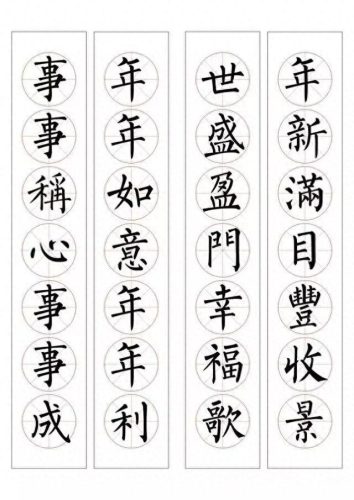 年新滿目豐收景
世盛盈門幸福歌
年年如意年年利
事事稱心事事成